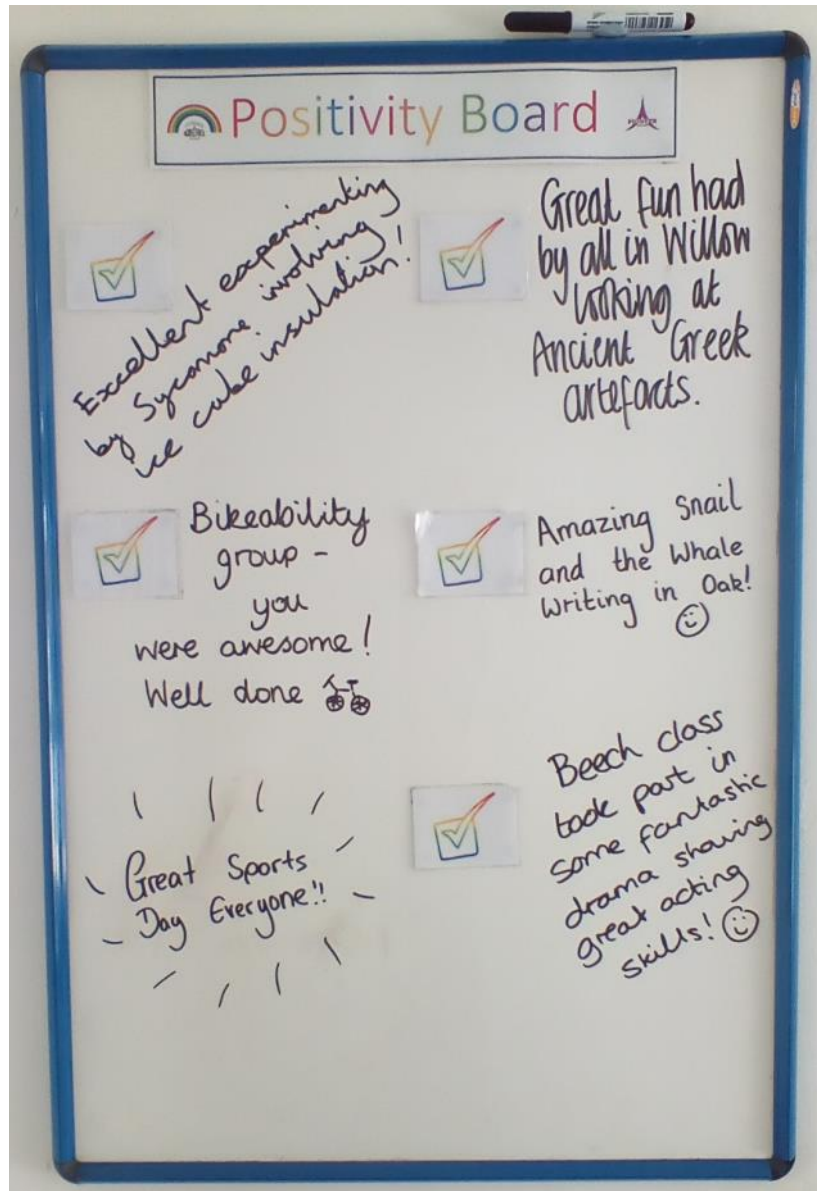 Positivity Board
Excellent experimenting
by Sycamore involving
ice cube insulation!
Great fun had
by all in Willow
looking at
Ancient Greek
artefacts.
Bikeability
group -
you
were awesome!
Well done
Amazing Snail
and the Whale
Writing in Oak!
Great Sports
Day Everyone!!
Beech class
took part in
some fantastic
drama showing
great acting
skills!